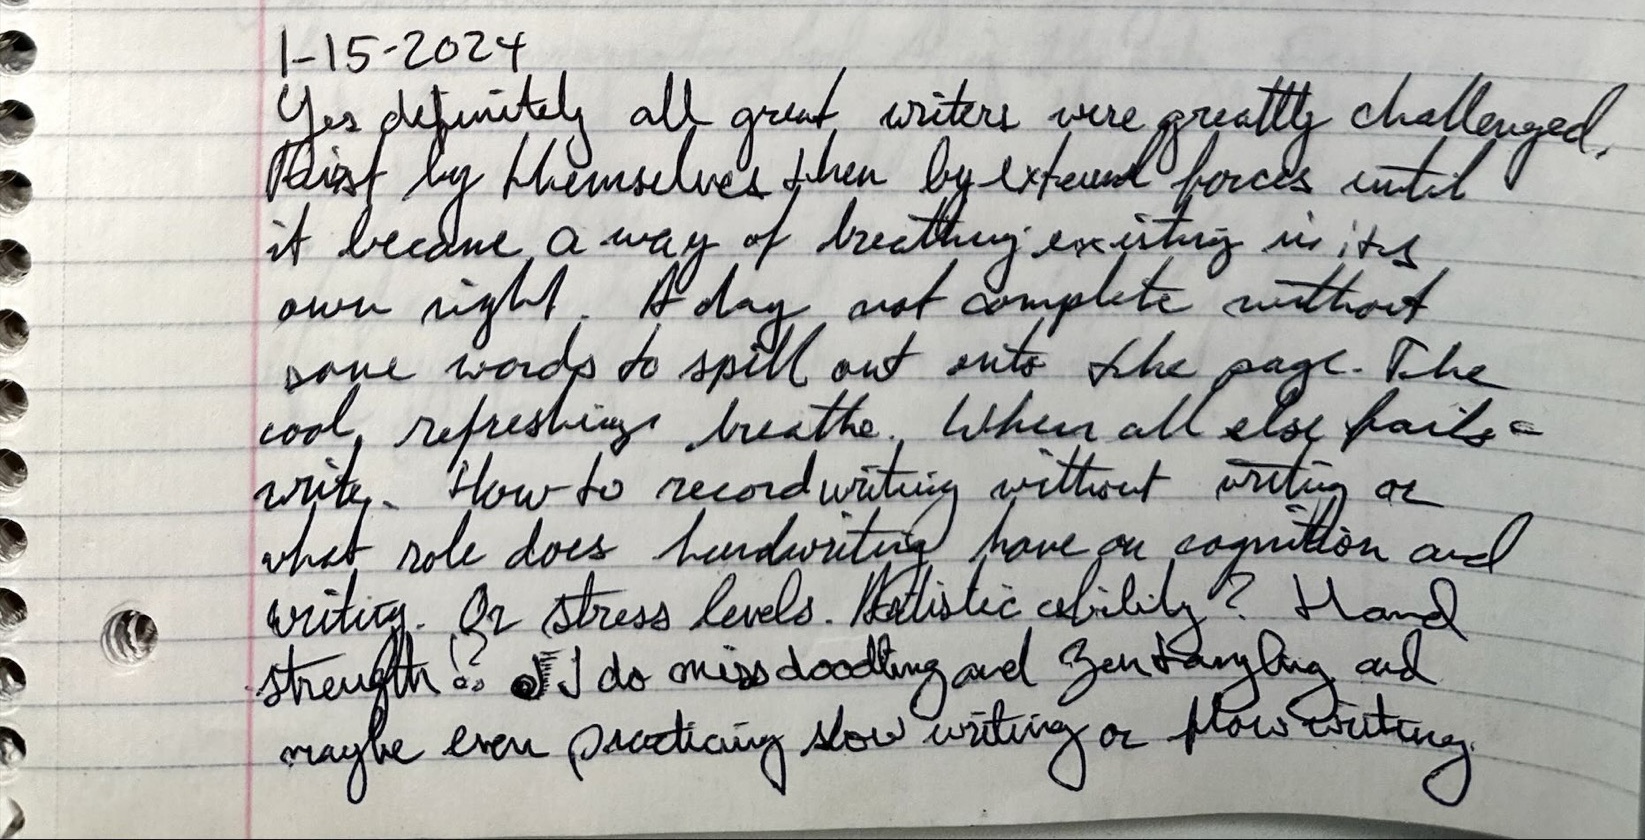 1-15-2024
Yes definitely all great writers were greattly challenged.
First by themselves then by external forces until
it became a way of breathing existing in its
own right. A day not complete without
some words to spill out onto the page. The
cool, refreshing breathe. When all else fails -
write. How to record writing without writing or
what role does handwriting have on cognition and
writing. Or stress levels. Artistic ability? Hand
strength!? I do miss doodling and Zentangling and
maybe even practicing slow writing or flow writing.